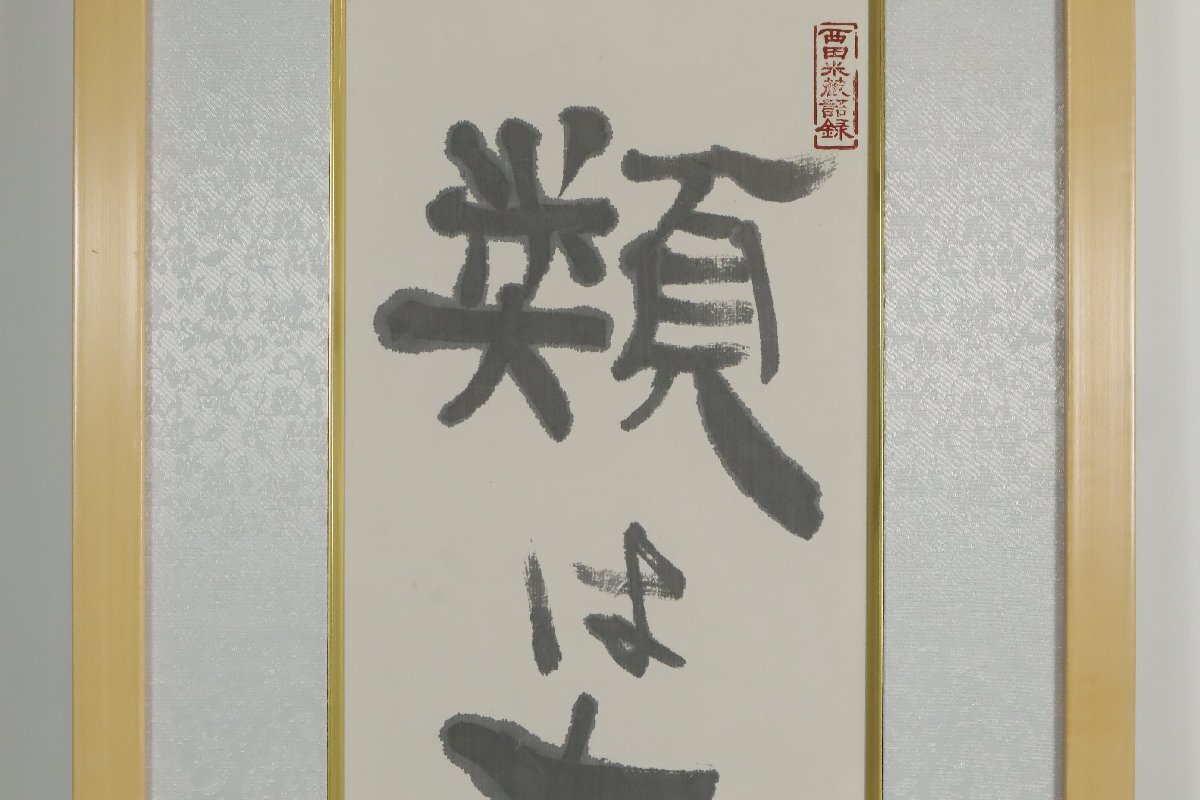 西田米蔵語録
類は